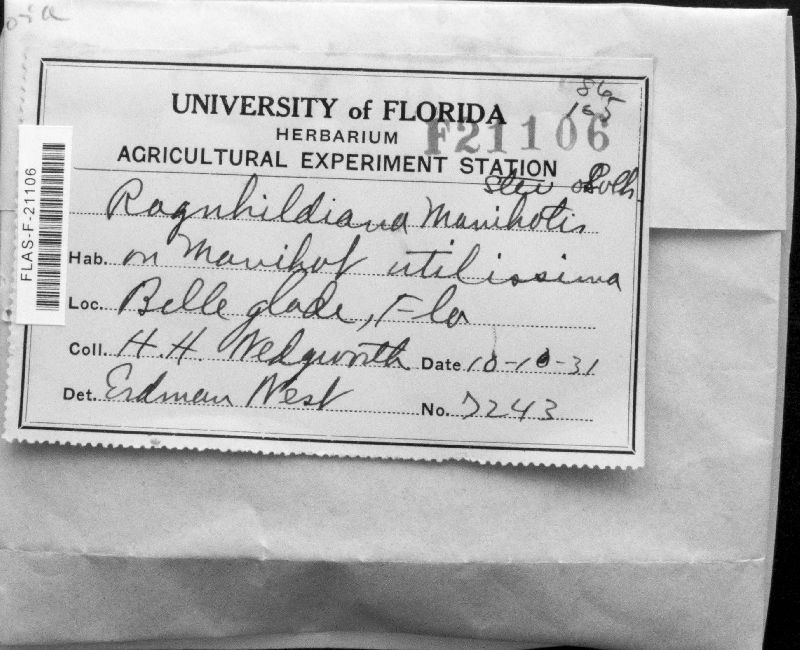 86
185
UNIVERSITY of FLORIDA
HERBARIUM
F21106
AGRICULTURAL EXPERIMENT STATION
Stev & Solh.
Ragnhildiana Manihotis
Hab. on Manihot utilissima
Loc. Belle glade, Fla
Coll. H. H. Wedgworth Date 10-10-31
Det. Erdman West No. 7243
FLAS-F-21106